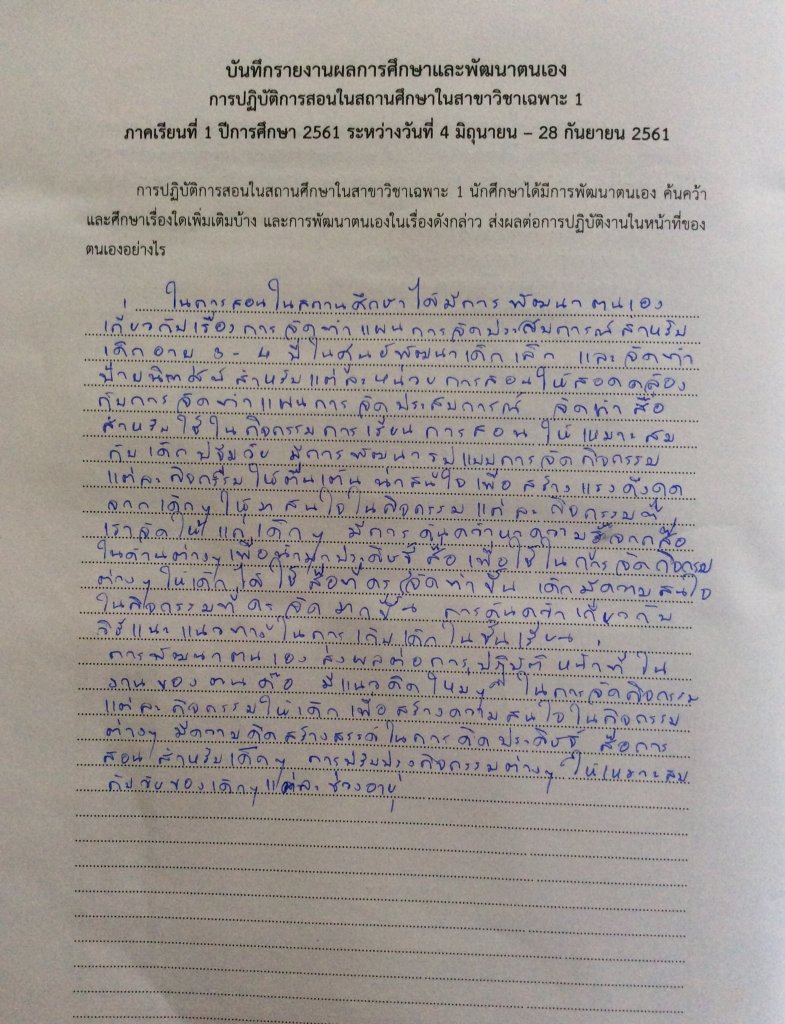 บันทึกรายงานผลการศึกษาและพัฒนาตนเอง
การปฏิบัติการสอนในสถานศึกษาในสาขาวิชาเฉพาะ 1
ภาคเรียนที่ 1 ปีการศึกษา 2561 ระหว่างวันที่ 4 มิถุนายน – 28 กันยายน 2561
การปฏิบัติการสอนในสถานศึกษาในสาขาวิชาเฉพาะ 1 นักศึกษาได้มีการพัฒนาตนเอง ค้นคว้า
และศึกษาเรื่องใดเพิ่มเติมบ้าง และการพัฒนาตนเองในเรื่องดังกล่าว ส่งผลต่อการปฏิบัติงานในหน้าที่ของ
ตนเองอย่างไร
ในการสอนในสถานศึกษาได้มีการพัฒนาตนเอง
เกี่ยวกับเรื่องการจัดทำแผนการจัดประสบการณ์สำหรับ
เด็กอายุ 3-4 ปีในศูนย์พัฒนาเด็กเล็ก และจัดทำ
ป้ายนิเทศสำหรับแต่ละหน่วยการสอนให้สอดคล้อง
กับการจัดทำแผนการจัดประสบการณ์ จัดทำสื่อ
สำหรับใช้ในกิจกรรมการเรียนการสอนให้เหมาะสม
กับเด็กปฐมวัย มีการพัฒนารูปแบบการจัดกิจกรรม
แต่ละกิจกรรมให้ตื่นเต้น น่าสนใจเพื่อสร้างแรงดึงดูด
จากเด็กๆให้มาสนใจในกิจกรรมแต่ละกิจกรรมที่
เราจัดให้แก่เด็กๆ มีการค้นคว้าหาความรู้จากสื่อ
ในด้านต่างๆเพื่อนำมาประดิษฐ์สื่อเพื่อใช้ในการจัดกิจกรรม
ต่างๆให้เด็กได้ใช้สื่อที่ครูจัดทำขึ้น เด็กมีความสนใจ
ในกิจกรรมที่ครูจัดมากขึ้น การค้นคว้าเกี่ยวกับ
วิธีแนะแนวทางในการเก็บเด็กในชั้นเรียน
การพัฒนาตนเองส่งผลต่อการปฏิบัติหน้าที่ใน
งานของตนคือ มีแนวคิดใหม่ๆ ในการจัดกิจกรรม
แต่ละกิจกรรมให้เด็กเพื่อสร้างความสนใจในกิจกรรม
ต่างๆ มีความคิดสร้างสรรค์ในการคิดประดิษฐ์ สื่อการ
สอนสำหรับเด็กๆ การปรับปรุงกิจกรรมต่างๆให้เหมาะสม
กับวัยของเด็กๆแต่ละช่วงอายุ